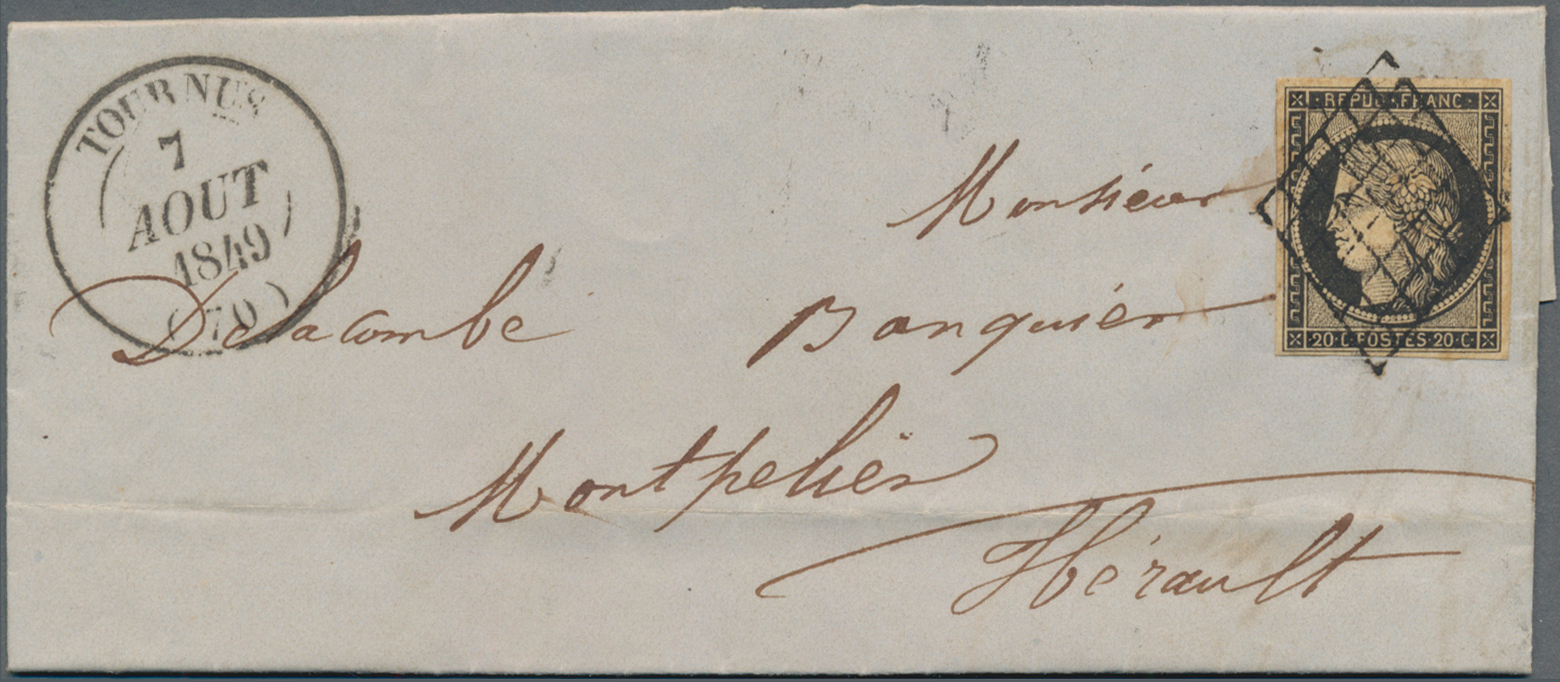 TOURNUS
7
AOUT
1849
(70)
REPUB FRANC
20 · C · POSTES · 20 · C
Monsieur
Delacombe Banquier
Montpelier
Hérault